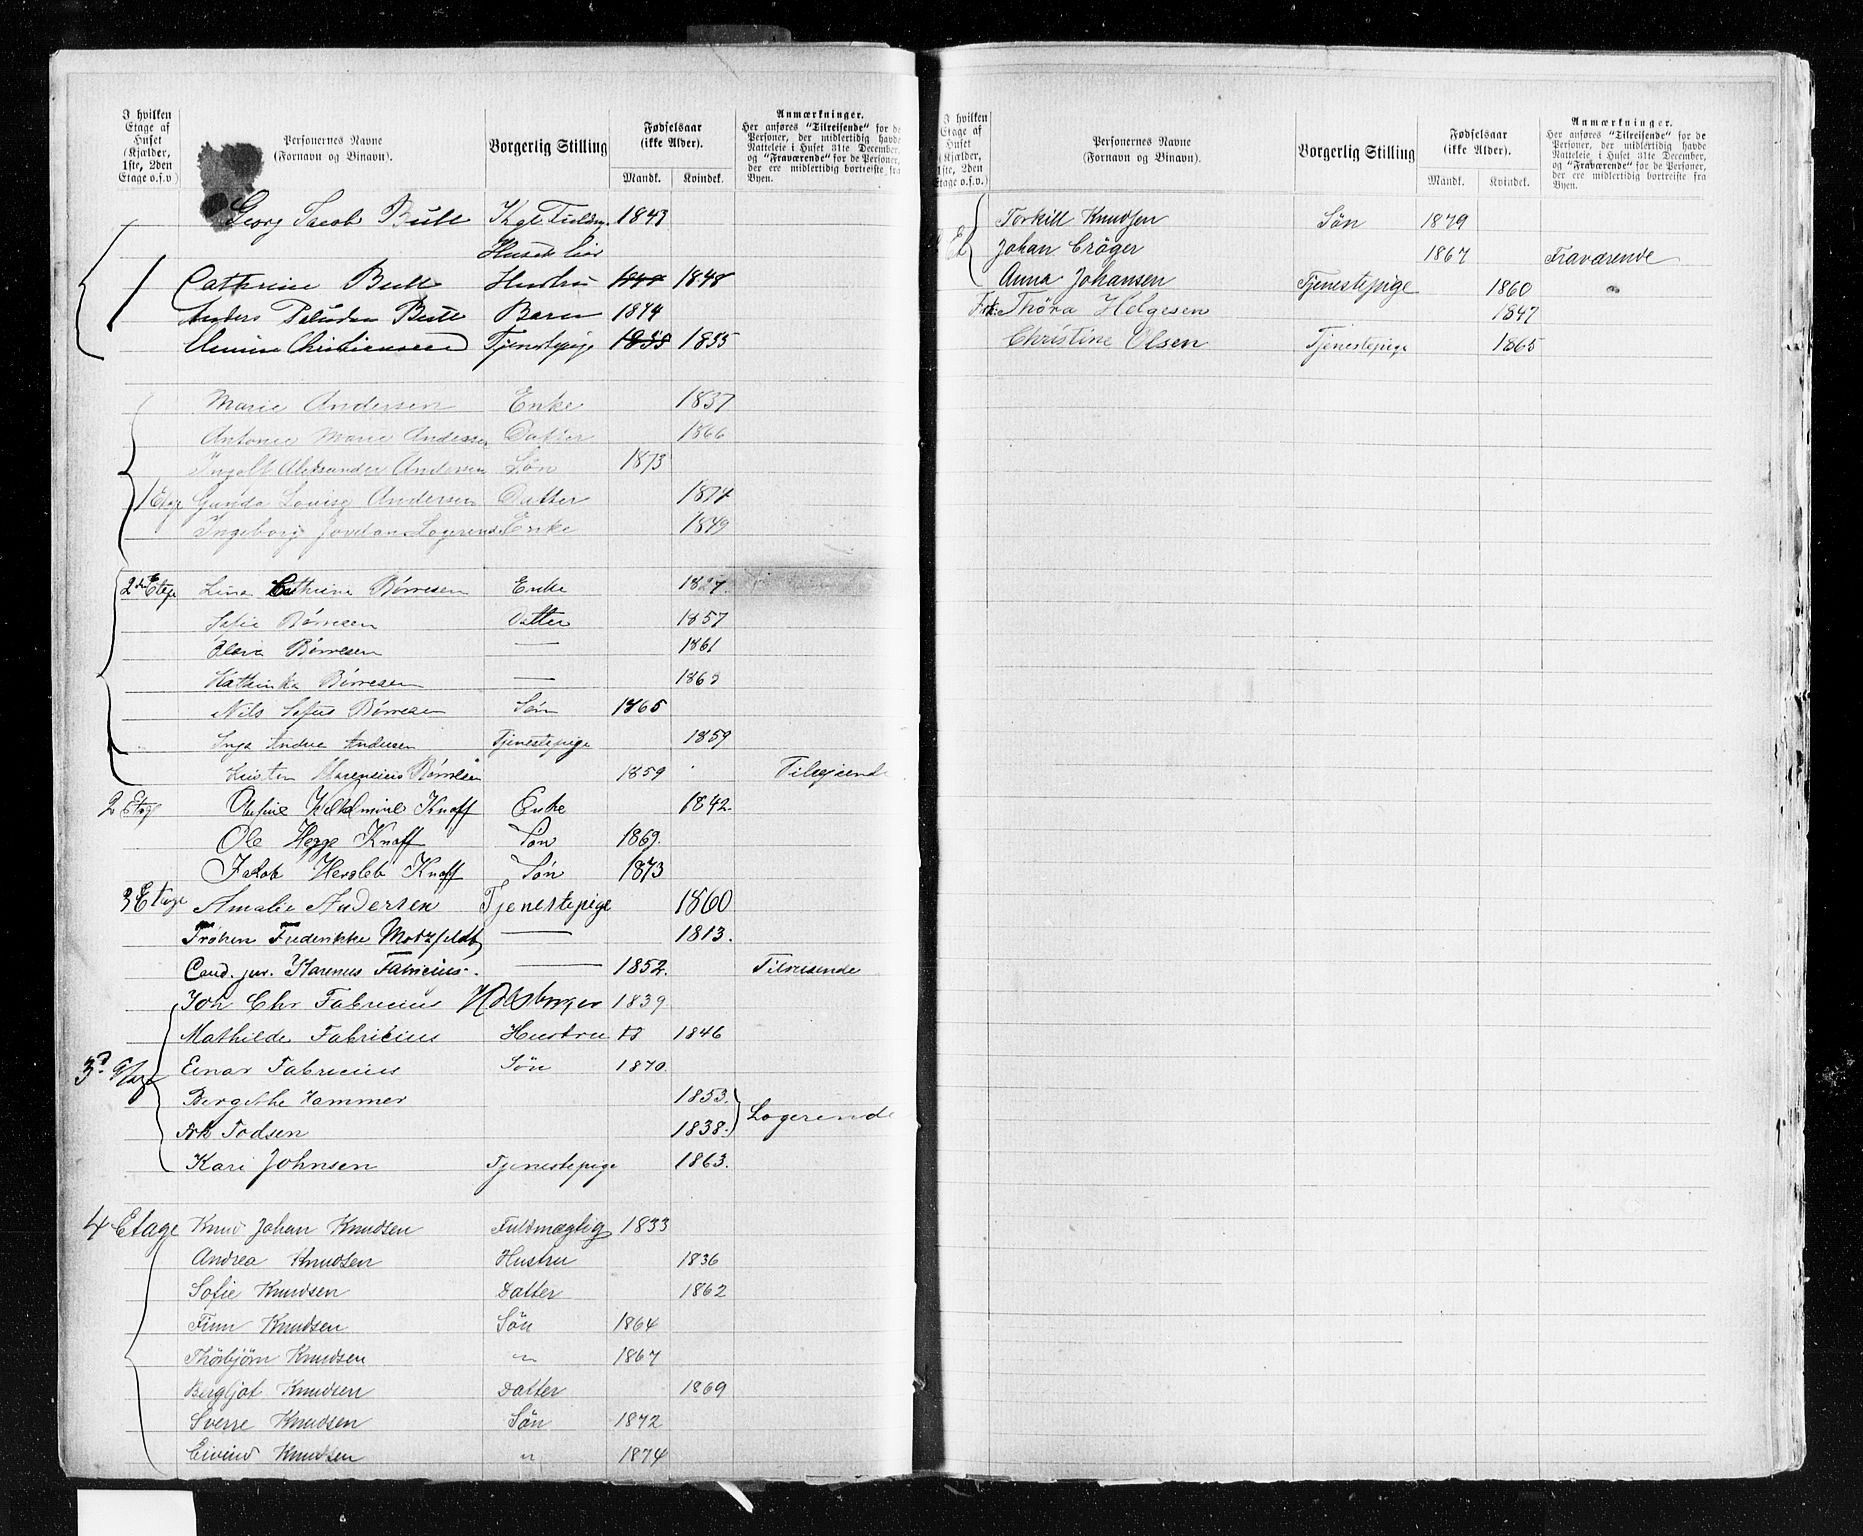 I hvilken
Etage af
Huset
(Kjælder,
1ste, 2den
Etage o.s.v)
Personernes Navne
(Fornavn og Binavn).
Borgerlig Stilling
Fødselsaar
(ikke Alder).
Mandk. Kvindek.
Anmærkninger.
Her anføres "Tilreisende" for de
Personer, der midlertidig havde
Natteleie i Huset 31te December,
og "Fraværende" for de Personer,
der ere midlertidig bortreiste fra
Byen.
Georg Jacob Bull Kgl Fuldm. 1843
Huseier
1 Cathrine Bull Hustru 1848
Anders Paludan Bull Barn 1874
Christiansen Tjenestepige 1835
Marie Andersen Enke 1837
Antonie Marie Andersen Datter 1866
Ingolf Aleksander Andersen Søn 1873
1 Etage Gunda Lovise Andersen Datter 1874
Ingeborg Jordan Logerende Enke 1849
2den Etage Lina Cathrine Børresen Enke 1827.
Sofie Børresen Datter 1857
Børresen — 1861
Kathinka Børresen — 1863
Nils Sofus Børresen Søn 1865
Inga Andrea Andersen Tjenestepige 1859
Børresen 1859 Tilreisende
2 Etage Vilhelmine Knoff Enke 1842.
Ole Hegge Knoff Søn 1869.
Jakob Hersleb Knoff Søn 1873
3 Etage Amalie Andersen Tjenestepige 1860
Frøken Frederikke Motzfeldt — 1813.
Cand. jur. Karenus Fabricius. — 1852. Tilreisende
Joh Chr Fabricius 1839
Mathilde Fabricius Hustru 1846
3d Etage Einar Fabricius Søn 1870
Bergithe Hammer 1853.
Logerende
Frk Todsen 1838.
Kari Johnsen Tjenestepige 1863.
4 Etage Knud Johan Knudsen Fuldmægtig 1833
Andrea Knudsen Hustru 1836
Sofie Knudsen Datter 1862
Finn Knudsen Søn 1864
Thorbjørn Knudsen " 1867
Bergljot Knudsen Datter 1869
Sverre Knudsen Søn 1872
Eivind Knudsen " 1874
I hvilken
Etage af
Huset
(Kjælder,
1ste, 2den
Etage o.s.v.)
Personernes Navne
(Fornavn og Binavn).
Borgerlig Stilling
Fødselsaar
(ikke Alder).
Mandk. Kvindek.
Anmærkninger.
Her anføres "Tilreisende" for de
Personer, der midlertidig havde
Natteleie i Huset 31te December,
og "Fraværende" for de Personer,
der ere midlertidig bortreiste fra
Byen.
Torkill Knudsen Søn 1879
Johan Crøger 1867 Fraværende
Anna Johansen Tjenestepige 1860
Frk: Thora Helgesen 1847
Christine Olsen Tjenestepige 1865